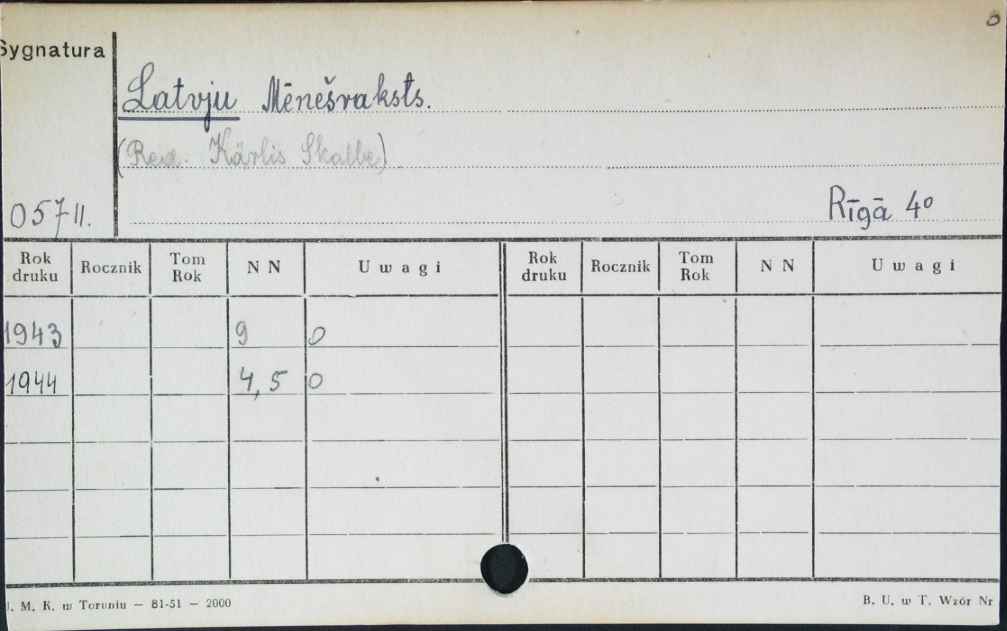 0
Sygnatura
Latvju Mēnešraksts.
(Red. Kārlis Skalbe)
057 II.
Rīgā 4º
Rok druku Rocznik Tom Rok N N Uwagi Rok druku Rocznik Tom Rok N N Uwagi
1943 9 0
1944 4,5 0
U. M. K. w Toruniu — 81-51 — 2000
B. U. w T. Wzór Nr